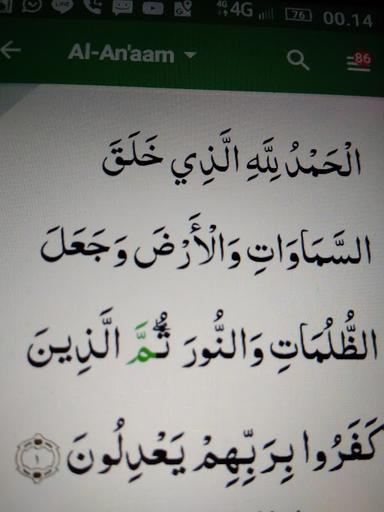 4G 76 00.14
Al-An'aam
86
الْحَمْدُ لِلَّهِ الَّذِي خَلَقَ
السَّمَاوَاتِ وَالْأَرْضَ وَجَعَلَ
الظُّلُمَاتِ وَالنُّورَ ثُمَّ الَّذِينَ
كَفَرُوا بِرَبِّهِمْ يَعْدِلُونَ ١